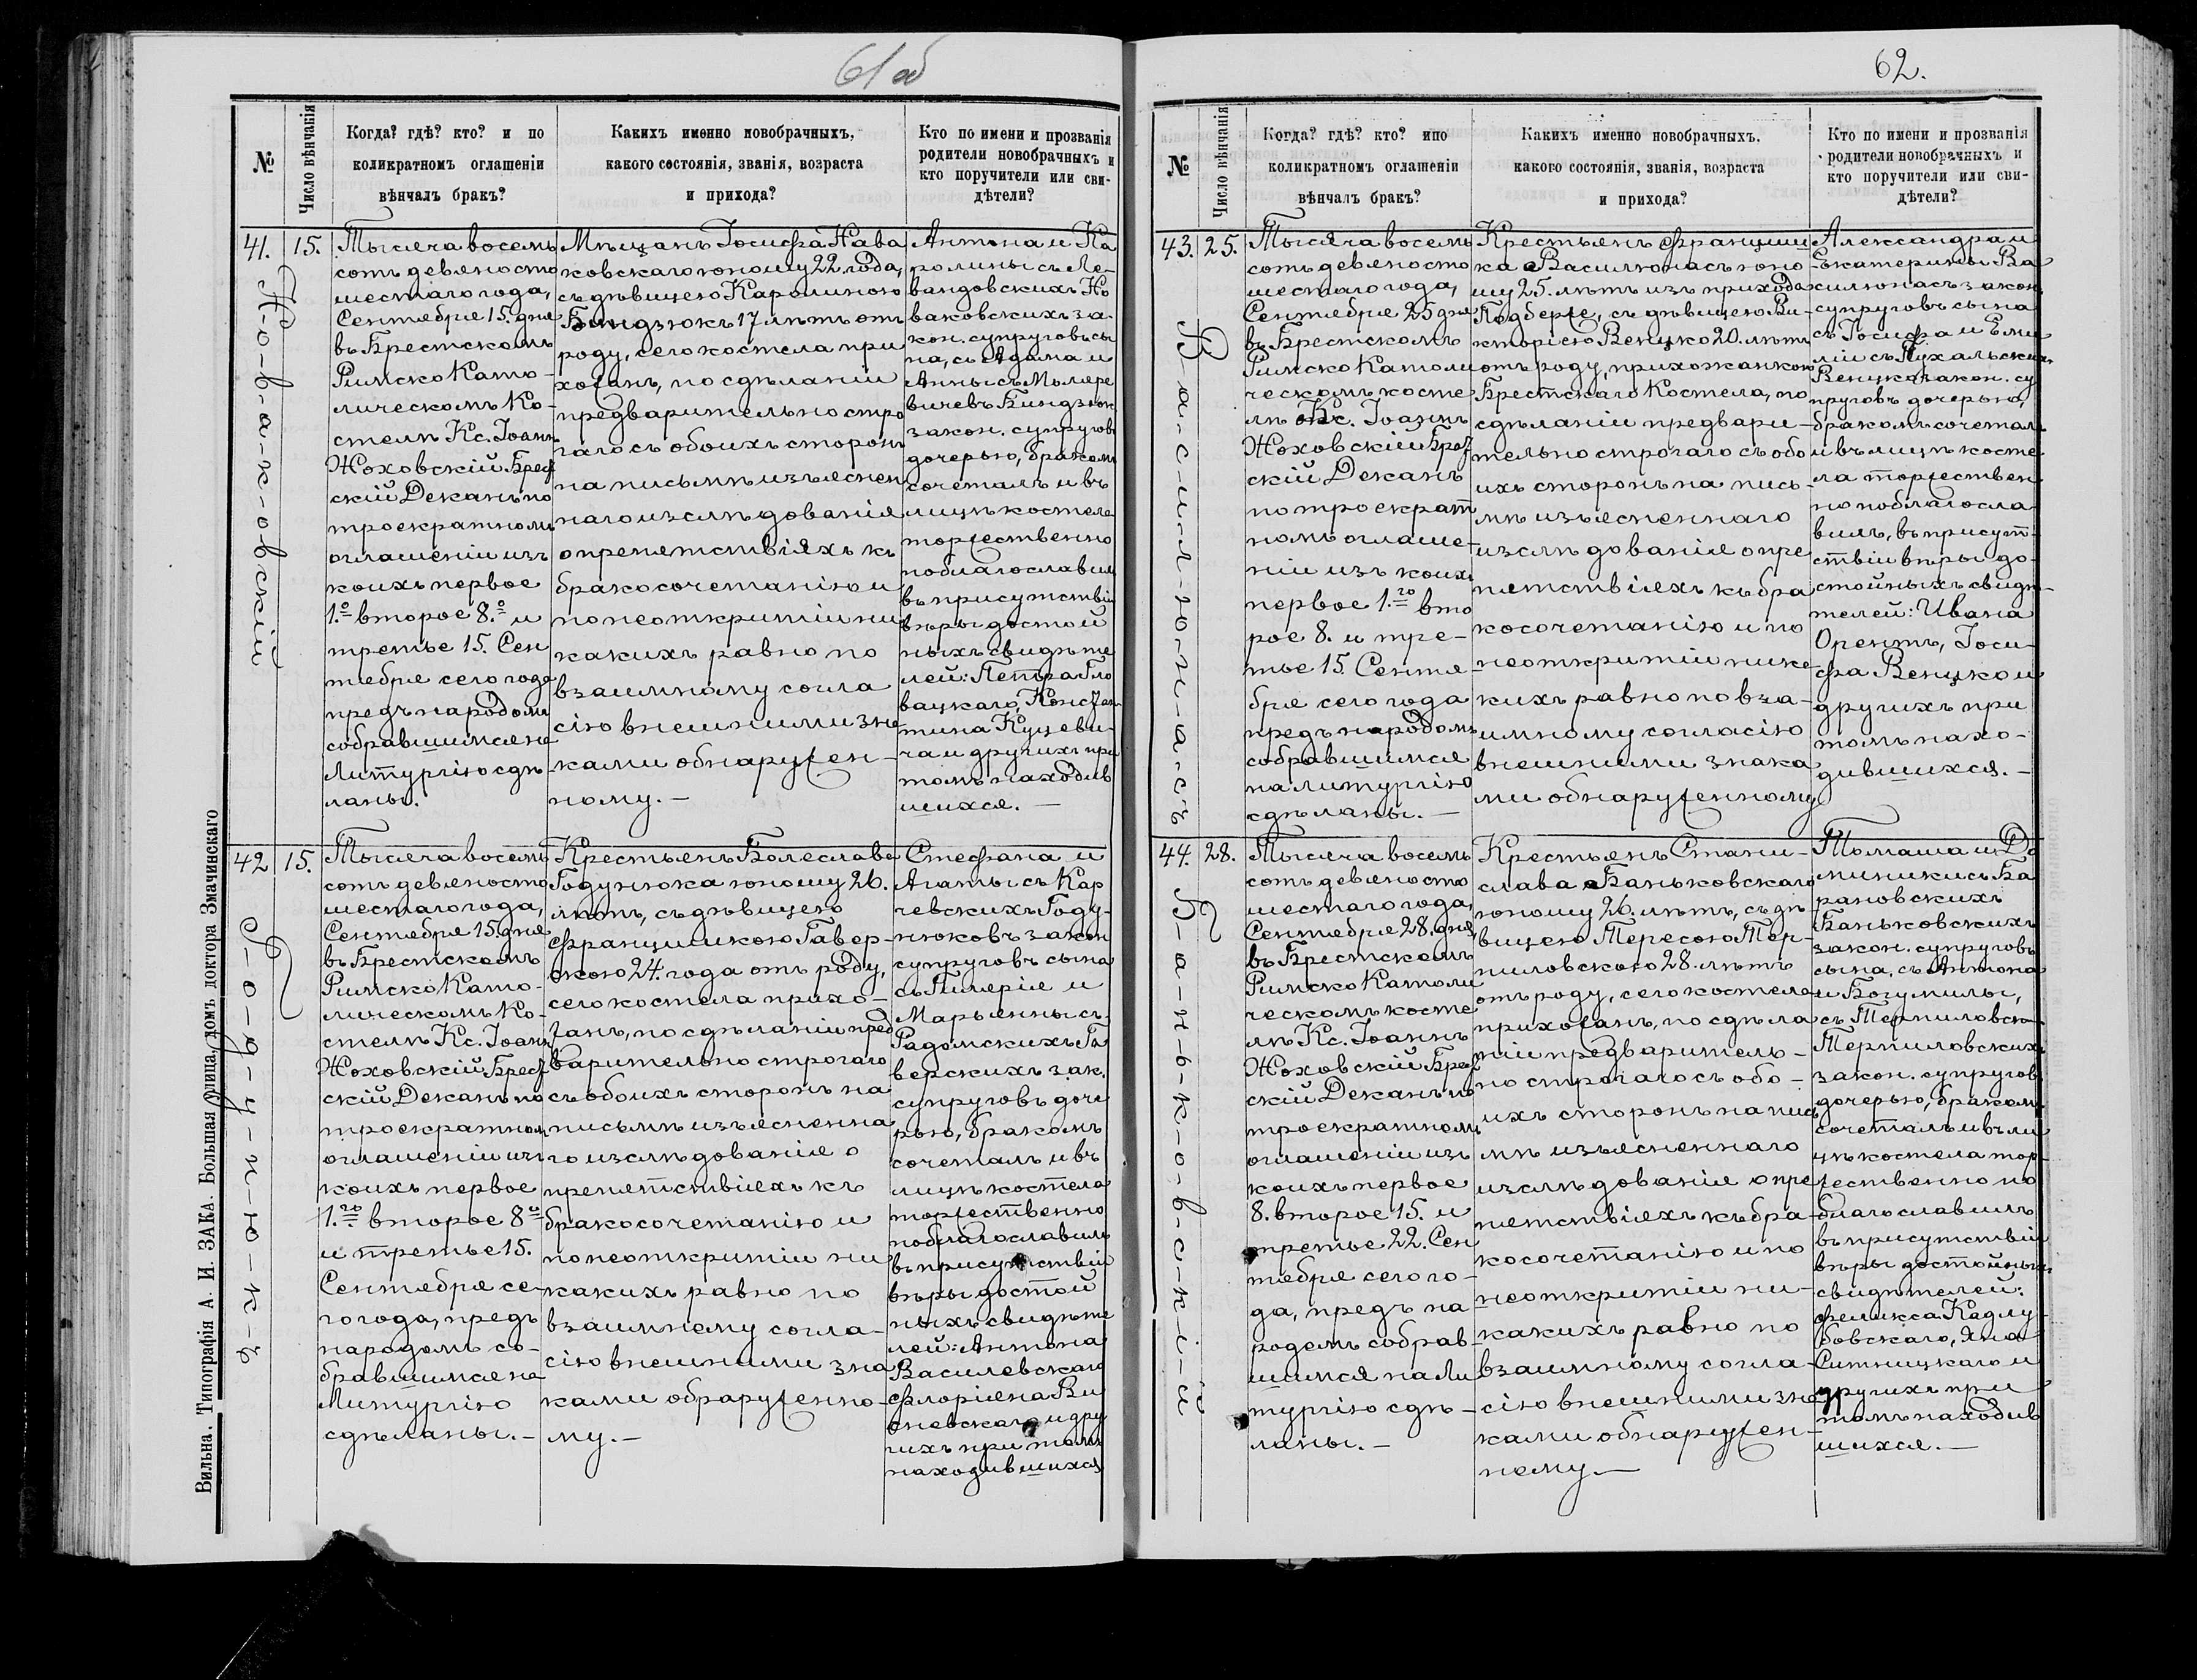 61 об
№
Число вѣнчанія
Когда? гдѣ? кто? и по
коликратномъ оглашеніи
вѣнчалъ бракъ?
Какихъ именно новобрачныхъ,
какого состоянія, званія, возраста
и прихода?
Кто по имени и прозванія
родители новобрачныхъ и
кто поручители или сви-
дѣтели?
41.
Н-о-в-а-к-овскій
15.
Тысяча восемь
сотъ девяносто
шестаго года,
Сентября 15. дня
въ Брестскомъ
Римско Като-
лическомъ Ко-
стелѣ Кс. Іоаннъ
Жоховскій Брест
скій Деканъ по
троекратномъ
оглашеніи изъ
коихъ первое
1.º второе 8.º и
третье 15. Сен
тября сего года
предъ народомъ
собравшимся на
Литургію сдѣ-
ланы.
Мѣщанъ Іосифа Нава
ковскаго юношу 22. года,
съ дѣвицею Каролиною
Биндзюкъ 17 лѣтъ отъ
роду, сего костела при
хожанъ, по сдѣланіи
предварительно стро
гаго съ обоихъ сторонъ
на письмѣ изъяснен
наго изслѣдованія
о препятствіяхъ къ
бракосочетанію и
по неоткрытіи ни
какихъ равно по
взаимному согла
сію внешними зна
ками обнаружен-
ному.-
Антона и Ка
ролины съ Ле-
вандовскихъ Но
ваковскихъ за-
кон. супруговъ сы
на, съ Адама и
Анны съ Моляре
вичевъ Биндзюк
закон. супруговъ
дочерью, бракомъ
сочеталъ и въ
лицѣ костела
торжественно
поблагославилъ
въ присутствіи
вѣры достой
ныхъ свидѣте
лей: Петра Гло
вацкаго, Констан
тина Куцеви-
ча и другихъ при
томъ находив
шихся.-
42
Г-о-д-у-н-ю-к-ъ
15.
Тысяча восемь
сотъ девяносто
шестаго года,
Сентября 15. дня
въ Брестскомъ
Римско Като-
лическомъ Ко-
стелѣ Кс. Іоаннъ
Жоховскій Брест
скій Деканъ по
троекратномъ
оглашеніи изъ
коихъ первое
1.го второе 8º
и третье 15.
Сентября се-
го года, предъ
народомъ со-
бравшимся на
Литургію
сдѣланы.-
Крестьянъ Болеслава
Годунюка юношу 26.
лѣтъ, съ дѣвицею
Францишкою Гавер-
скою 24. года отъ роду,
сего костела прихо-
жанъ, по сдѣланіи пред
варительно строгаго
съ обоихъ сторонъ на
письмѣ изъясненна
го изслѣдованія о
препятствіяхъ къ
бракосочетанію и
по неоткрытіи ни
какихъ равно по
взаимному согла-
сію внешними зна
ками обраруженно-
му.-
Стефана и
Агаты съ Кар
чевскихъ Году-
нюковъ закон
супруговъ сына
съ Гиляріи и
Марьянны съ
Радомскихъ Га
верскихъ зак.
супруговъ доче
рью, бракомъ
сочеталъ и въ
лицѣ костела
торжественно
поблагославилъ
въ присутствіи
вѣры достой
ныхъ свидѣте
лей: Антона
Василевскаго
Флоріяна Ви
сневскаго и дру
гихъ при томъ
находившихся
Вильна. Типографія А. И. ЗАКА. Большая улица, домъ доктора Змачинскаго
62.
№
Число вѣнчанія
Когда? гдѣ? кто? ипо
коликратномъ оглашеніи
вѣнчалъ бракъ?
Какихъ именно новобрачныхъ,
какого состоянія, званія, возраста
и прихода?
Кто по имени и прозванія
родители новобрачныхъ и
кто поручители или сви-
дѣтели?
43.
В-а-с-и-л-ю-н-а-съ
25.
Тысяча восемь
сотъ девяносто
шестаго года,
Сентября 25 дня
въ Брестскомъ
Римско Католи
ческомъ косте
лѣ Кс. Іоаннъ
Жоховскій Брест
скій Деканъ
по троекрат
номъ оглаше-
ніи изъ коихъ
первое 1.го вто
рое 8. и тре-
тье 15. Сентя
бря сего года
предъ народомъ
собравшимся
на литургію
сдѣланы.-
Крестьянъ Францишка
ка Василюнасъ юно
шу 25. лѣтъ изъ прихода
Подберже, съ дѣвицею Ви-
кторіею Венцко 20. лѣтъ
отъ роду, прихожанкою
Брестскаго Костела, по
сдѣланіи предвари-
тельно строгаго съ обо
ихъ сторонъ на пись-
мѣ изъясненнаго
изслѣдованія о пре
пятствіяхъ къ бра
косочетанію и по
неоткрытіи ника
кихъ равно по вза-
имному согласію
внешними знака
ми обнаруженному
Александра и
Екатерины Ва
силюнасъ закон.
супруговъ сына
съ Іосифа и Еми
ліи съ Пухальских
Венцко закон. су
пруговъ дочерью,
бракомъ сочеталъ
и въ лицѣ косте
ла торжествен
но поблагосла-
вилъ, въ присут-
ствіи вѣры до-
стойныхъ свидѣ-
телей: Ивана
Орентъ, Іоси-
фа Венцко и
другихъ при
томъ нахо-
дившихся.-
44.
Б-а-н-ь-к-о-в-с-к-і-й
28.
Тысяча восемь
сотъ девяносто
шестаго года,
Сентября 28. дня
въ Брестскомъ
Римско Католи
ческомъ косте
лѣ Кс. Іоаннъ
Жоховскій Брест
скій Деканъ по
троекратномъ
оглашеніи изъ
коихъ первое
8. второе 15. и
третье 22. Сен
тября сего го-
да, предъ на
родомъ собрав
шимся на Ли
тургію сдѣ-
ланы.-
Крестьянъ Стани-
слава Баньковскаго
юношу 26. лѣтъ, съ дѣ
вицею Тересою Тер-
пиловскою 28. лѣтъ
отъ роду, сего костела
прихожанъ, по сдѣла
ніи предваритель-
но строгаго съ обо-
ихъ сторонъ на пись
мѣ изъясненнаго
изслѣдованія о пре
пятствіяхъ къ бра-
косочетанію и по
неоткрытіи ни-
какихъ равно по
взаимному согла-
сію внешними зна
ками обнаружен-
ному.-
Томаша и До
миники съ Ба
рановскихъ
Баньковскихъ
закон. супруговъ
сына, съ Антона
и Богумилы,
съ Терпиловск-
Терпиловскихъ
закон. супругов
дочерью, бракомъ
сочеталъ и въ ли
цѣ костела тор-
жественно по
благославилъ
въ присутствіи
вѣры достойныхъ
свидѣтелей:
Феликса Кадлу-
бовскаго, Яна
Ситницкаго и
другихъ при
томъ находив
шихся.-